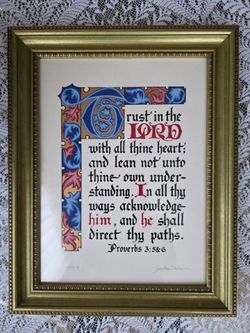 Trust in the
LORD
with all thine heart;
and lean not unto
thine own under-
standing. In all thy
ways acknowledge
him, and he shall
direct thy paths.
Proverbs 3:5&6